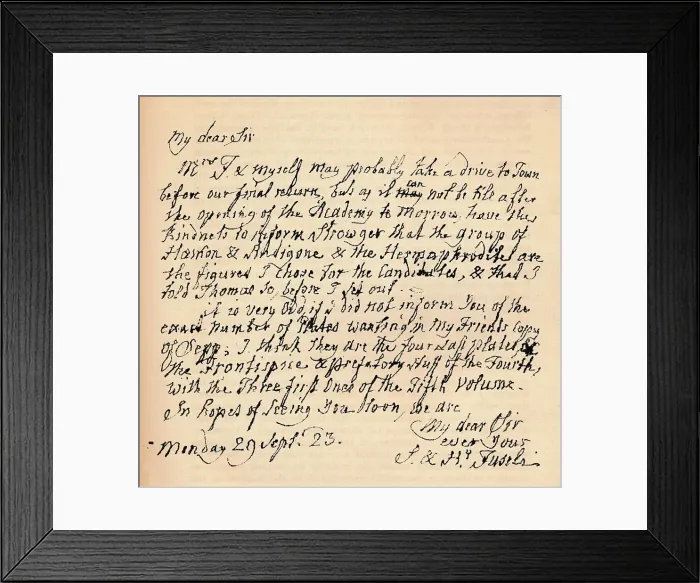 My dear Sir
Mrs F & myself may probably take a drive to Town
before our final return, but as it may can not be till after
the opening of the Academy to Morrow, have the
Kindness to inform Strowger that the group of
Haemon & Antigone & the Hermaphrodite are
the figures I chose for the Candidates, & that I
told Thomas so, before I set out
it is very odd, if I did not inform You of the
exact number of Plates wanting in My Friends Copy
of Sepp; I think They are the four Last plates,
the Frontispice & prefatory Stuff of the Fourth,
with the Three first Ones of the Fifth Volume.
In hopes of Seeing You Soon, we are
My dear Sir
ever Yours
Monday 29 Sept. 23.
S. & Hy. Fuseli